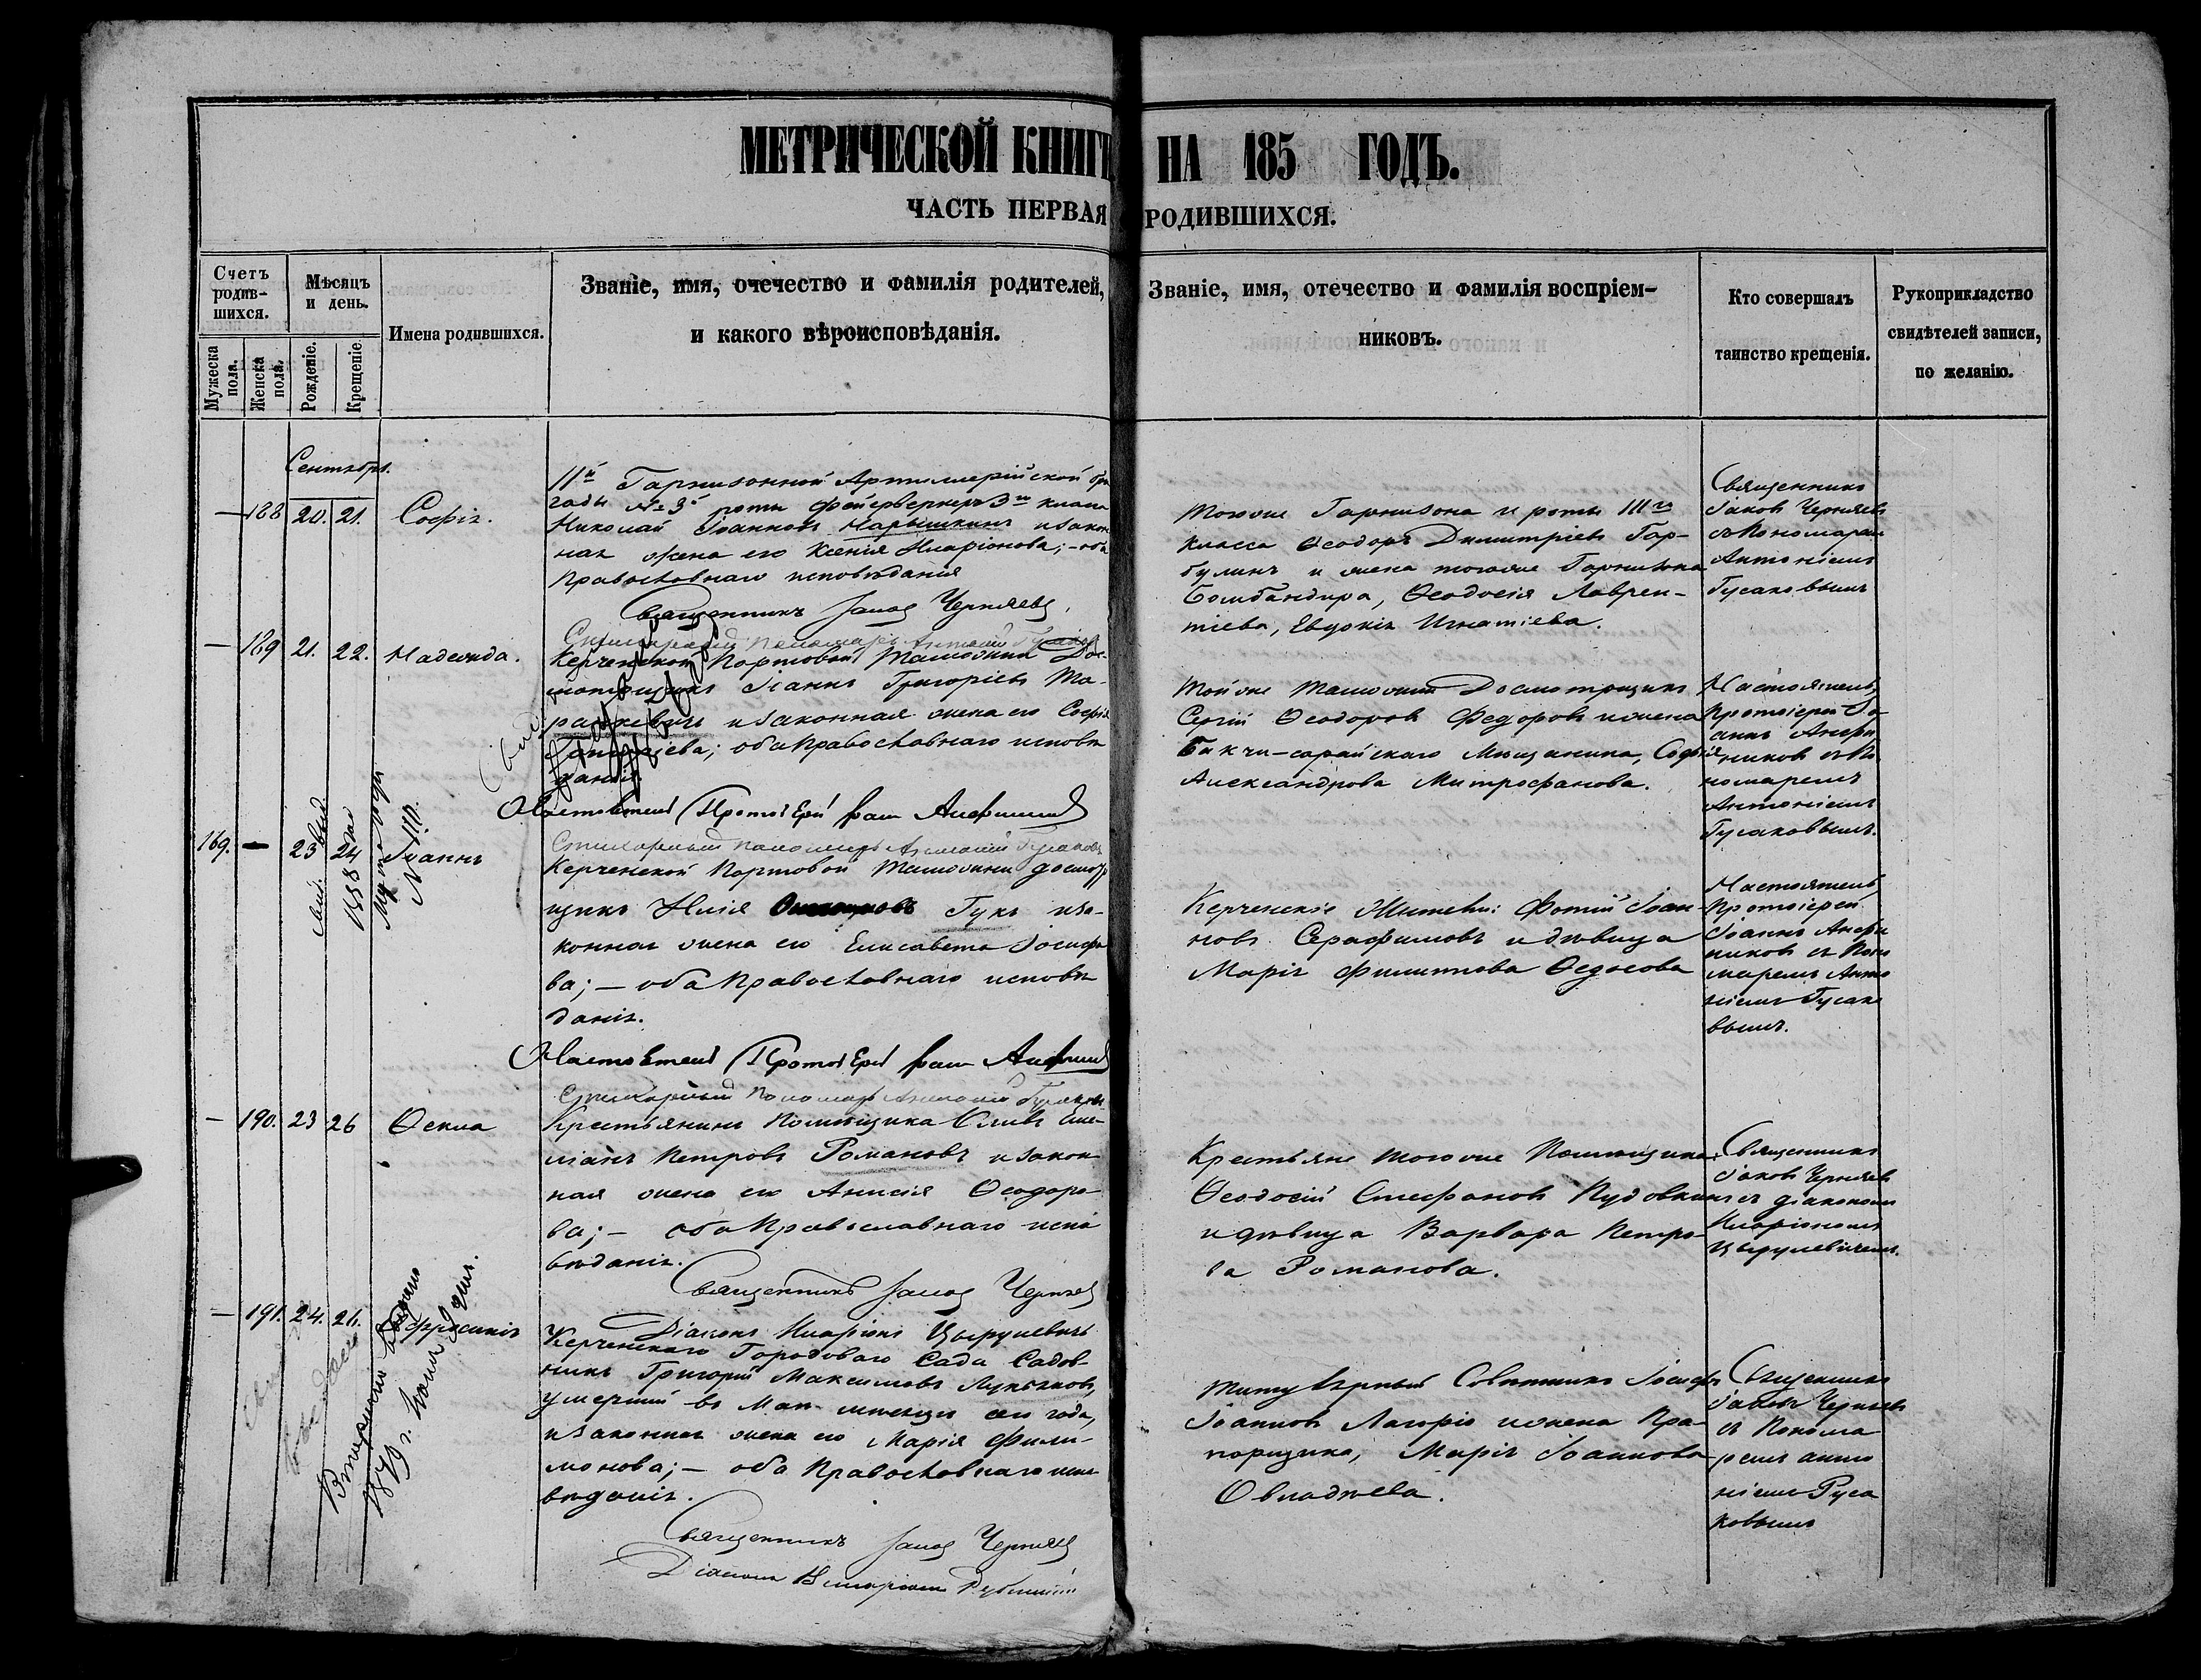 МЕТРИЧЕСКОЙ КНИГИ НА 185 ГОДЪ.
ЧАСТЬ ПЕРВАЯ РОДИВШИХСЯ.
Счетъ родив-шихся.
Мужеска пола.
Женска пола.
Мѣсяцъ и день.
Рожденіе.
Крещеніе.
Имена родившихся.
Званіе, имя, отечество и фамилія родителей,
и какого вѣроисповѣданія.
Званіе, имя, отечество и фамилія воспріем-
никовъ.
Кто совершалъ
таинство крещенія.
Рукоприкладство
свидѣтелей записи,
по желанію.
Сентябрь.
— 188 20. 21. Софія.
11й Гарнизонной Артиллерійской бри
гады №3й роты фейерверкеръ 3го класа
Николай Іоанновъ Нарышкинъ и закон
ная жена его Ксенія Иларіонова; – оба
Православнаго исповѣданія
Священникъ Іаковъ Черняевъ
Стихарный Пономарь Антоній Гусаковъ
Тогоже Гарнизона и роты IIIго
класса Ѳеодоръ Димитріевъ Гор-
булинъ и жена тогоже Гарнизона
Бомбандира, Ѳеодосія Лаврен-
тіева, Евдокія Игнатіева.
Священникъ
Іаковъ Черняевъ
съ Пономаремъ
Антоніемъ
Гусаковымъ
— 189 21. 22. Надежда.
Керченской Портовой Таможни Дос-
мотрщикъ Іоаннъ Григорьевъ
и законная жена его Софія
оба Православнаго исповѣ
данія.
Настоятель Протоіерей
Стихарный пономарь Антоній Гусаковъ
Той же Таможни Досмотрщикъ
Сергій Ѳеодоровъ Федоровъ и жена
Бакчи-сарайскаго Мещанина, Софія
Александрова Митрофанова.
Настоятель,
Протоіерей Іо-
аннъ Анфи
никовъ съ По
номаремъ
Антоніемъ
Гусаковымъ.
169. — 23 24 Іоаннъ
Керченской Портовой Таможни досмотр
щикъ Илія Гукъ и за-
конная жена его Елисавета Іосифо
ва; – оба Православнаго исповѣ
данія.
Настоятель Протоіерей
Стихарный Пономарь Антоній Гусаковъ
Керченскіе Жители: Фотій Іоан-
новъ Серафимовъ и дѣвица
Марія Филиппова Ѳедосова
Настоятель
Протоіерей
Іоаннъ Анфи
никовъ съ Поно
маремъ Анто
ніемъ Гусако
вымъ.
— 190. 23 26 Ѳекла
Крестьянинъ Помѣщика Оливъ Еме-
ліанъ Петровъ Романовъ и закон
ная жена его Анисія Ѳеодоро-
ва; – оба Православнаго испо
вѣданія.
Священникъ Іаковъ Черняевъ
Діаконъ Иларіонъ Цырулевичъ
Крестьяне тогоже Помѣщика:
Ѳеодосій Стефановъ Пудовкинъ
и дѣвица Варвара Петро-
ва Романова.
Священникъ
Іаковъ Черняевъ
съ діакономъ
Иларіономъ
Цырулевичемъ.
— 191. 24. 26. Ефросинія
Керченскаго Городоваго Сада Садов-
никъ Григорій Максимовъ Лукьяновъ,
умершій въ Маѣ мѣсяцѣ сего года,
и законная жена его Марія Фили-
монова; – оба Православнаго испо
вѣданія.
Священникъ Іаковъ Черняевъ
Діаконъ Иларіонъ
Титулярный Совѣтникъ Іосифъ
Іоанновъ Лагоріо и жена Пра-
порщика, Марія Іоаннова
Священникъ
Іаковъ Черняевъ
съ Понома
ремъ Анто
ніемъ Гуса
ковымъ